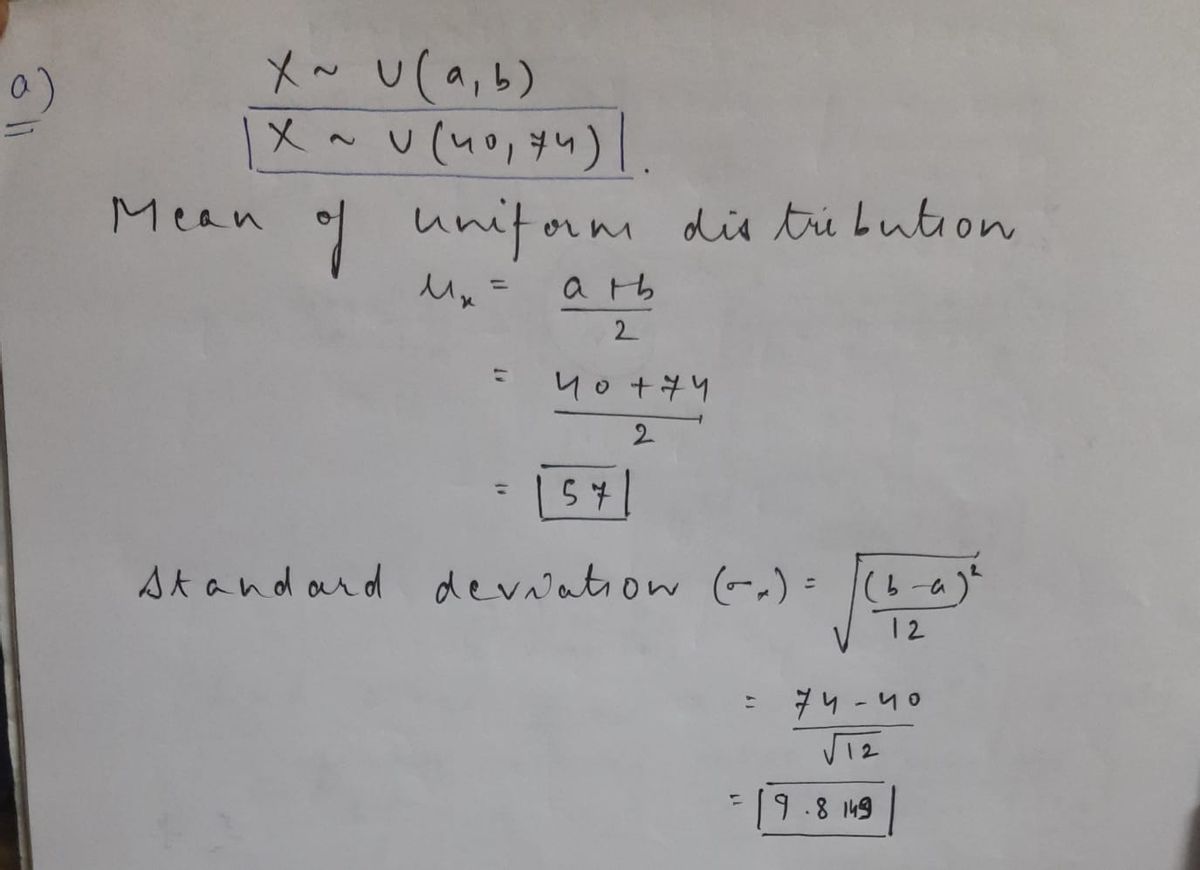 a)
X ~ U(a,b)
X ~ U(40,74).
Mean of uniform distribution
μₓ = a+b
2
= 40+74
2
= 57
Standard deviation (σₓ) = √(b-a)²
12
= 74-40
√12
= 9.8149